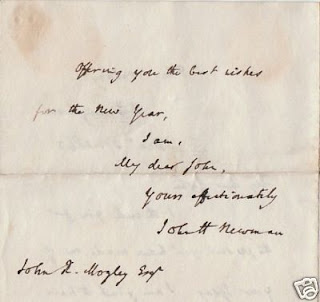 Offering you the best wishes
for the New Year,
I am,
My dear John,
Yours affectionately
John H Newman
John R. Mozley Esqr